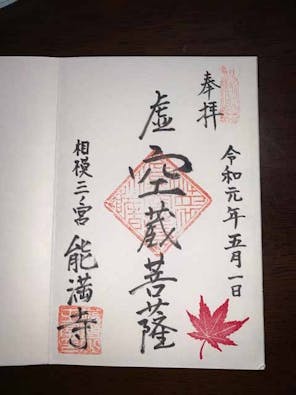 奉拝
令和元年五月一日
虚空蔵菩薩
相模二ノ宮
能満寺